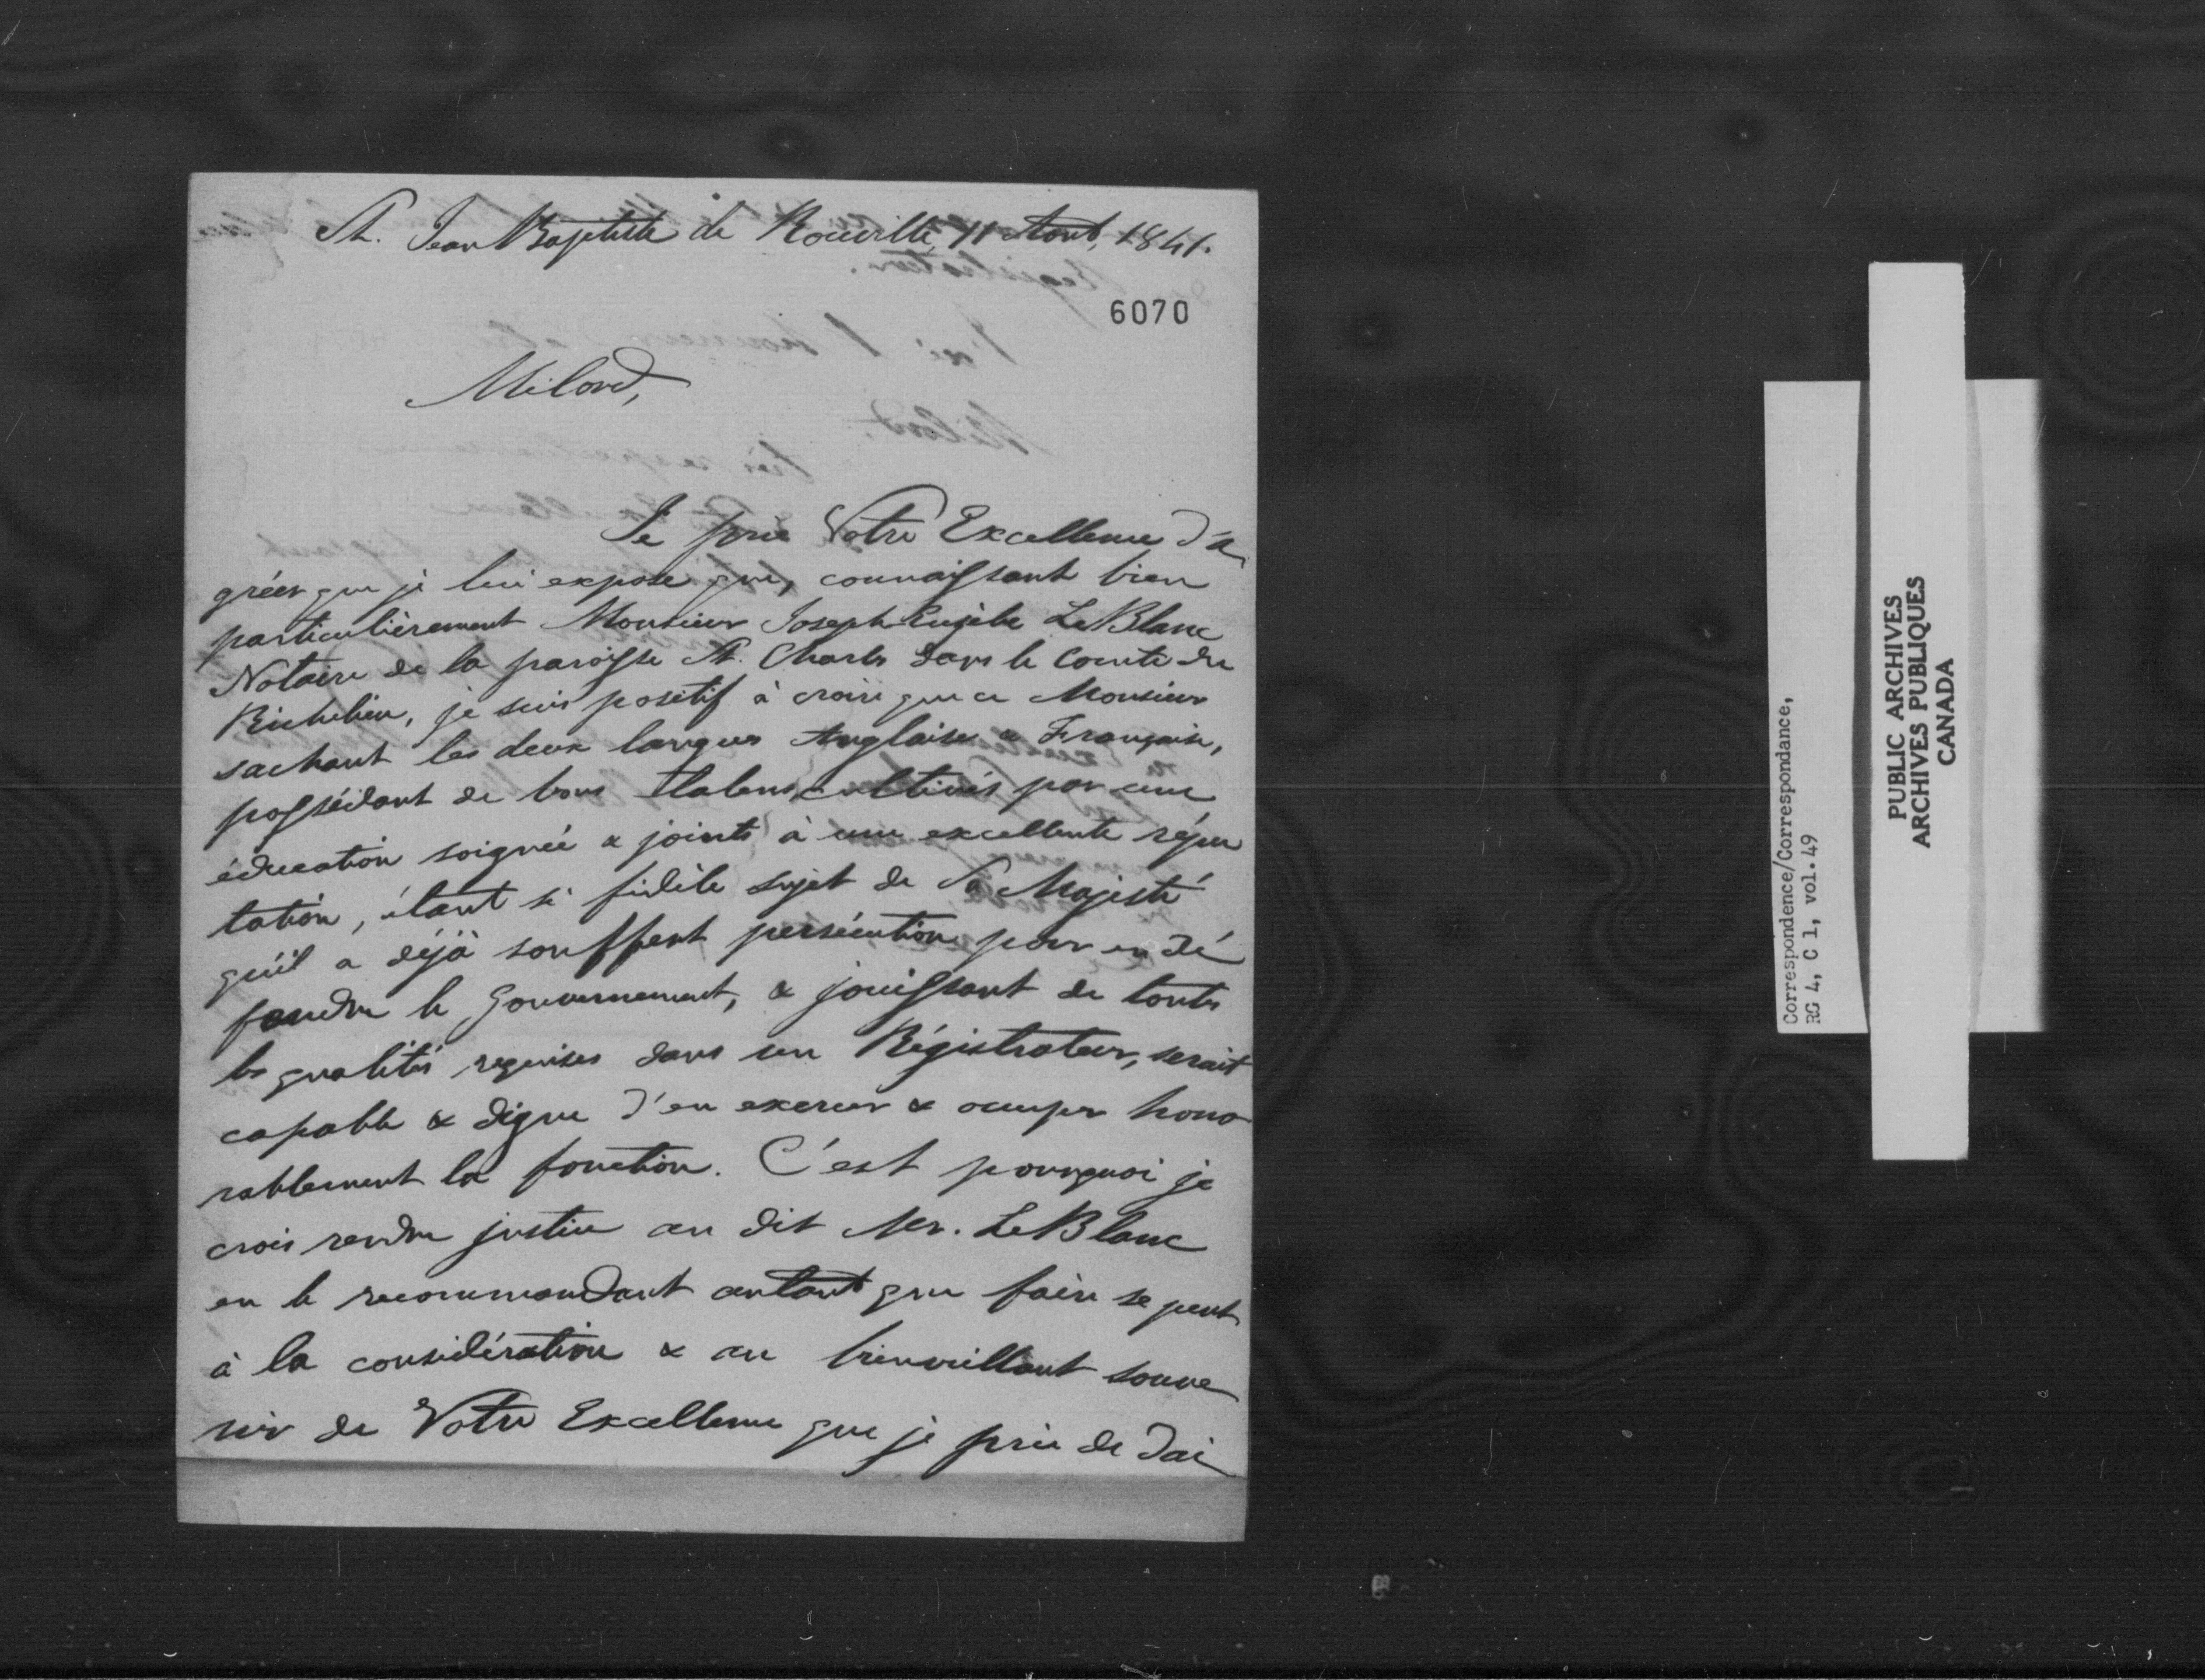 St. Jean Baptiste de Rouville, 11 Aout, 1841.
6070
Milord,
Je prie Votre Excellence d'a
gréer que je lui expose que, connaissant bien
particulièrement Monsieur Joseph Eusèbe LeBlanc
Notaire de la paroisse St. Charles dans le Comté de
Richelieu, je suis positif à croire que ce Monsieur
sachant les deux langues Anglaise & Française,
possédant de bons talens cultivés par une
éducation soignée & joints à une excellente répu
tation, étant si fidèle sujet de Sa Majesté
qu'il a déjà souffert persécution pour en dé
fendre le Gouvernement, & jouissant de toutes
les qualités requises dans un Régistrateur, serait
capable & digne d'en exercer & occuper hono
rablement la fonction. C'est pourquoi je
crois rendre justice au dit Mr. LeBlanc
en le recommandant autant que faire se peut
à la considération & au bienveillant souve
nir de Votre Excellence que je prie de dai
Correspondence/Correspondance,
RG 4, C 1, vol. 49
PUBLIC ARCHIVES
ARCHIVES PUBLIQUES
CANADA